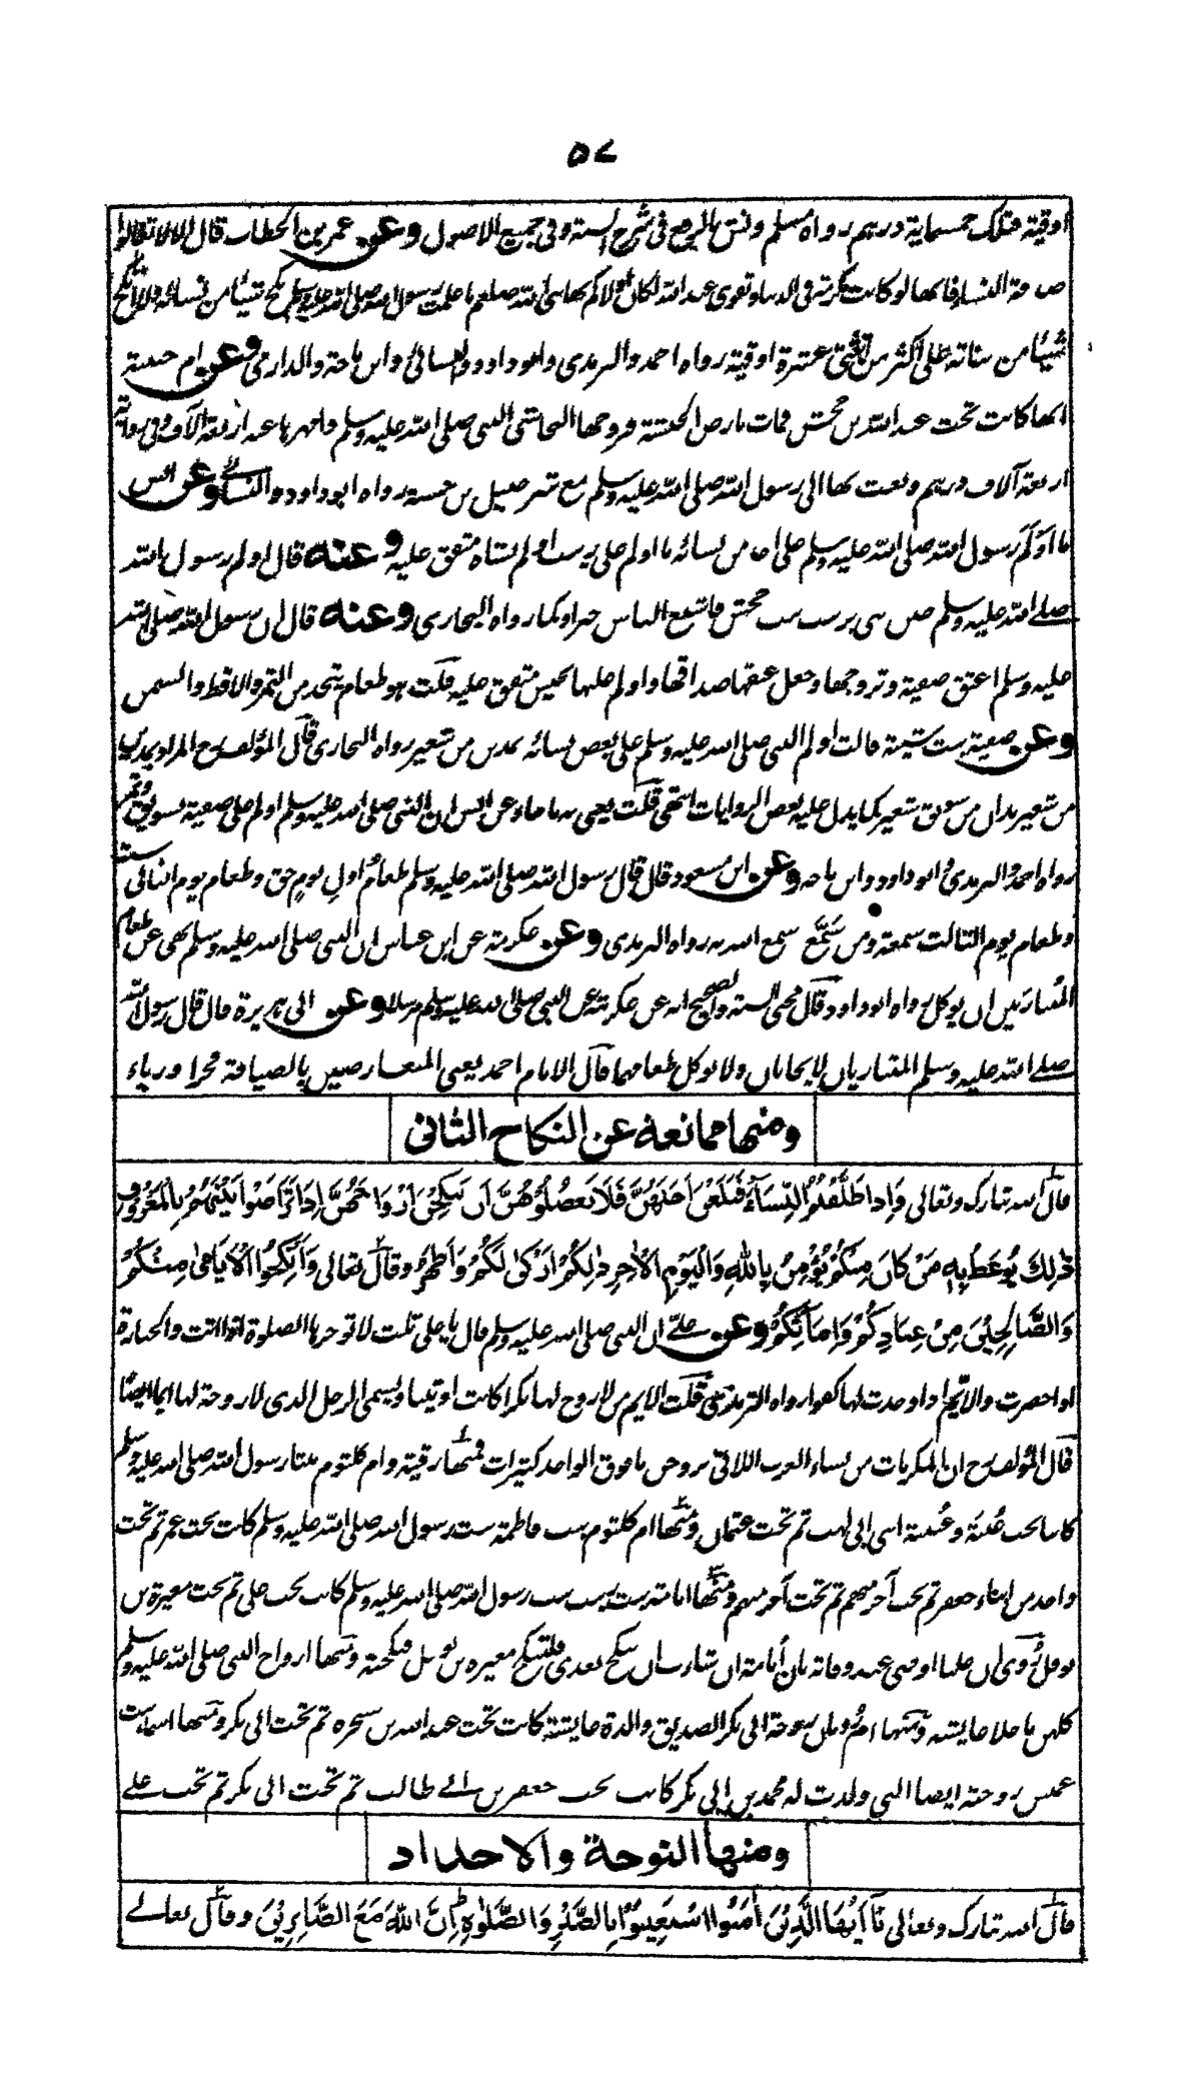 ٥٧
اوقية فتلك خمسماية درهم رواه مسلم ونش بالرفع في شرح السنة وفي جميع الاصول وعن عمر بن الخطاب قال الا لا تغالوا
صدقة النساء فانها لو كانت مكرمة في الدنيا وتقوى عند الله لكان اولاكم بها نبى الله صلعم ما علمت رسول الله صلى الله عليه وسلم نكح شيئا من نسائه ولا انكح
شيئا من بناته على اكثر من اثنتى عشرة اوقية رواه احمد والترمذى وابو داود والنسائى وابن ماجة والدارمى وعن ام حبيبة
انها كانت تحت عبد الله بن جحش فمات بارض الحبشة فزوجها النجاشى النبى صلى الله عليه وسلم وامهرها عنه اربعة الآف وفى رواية
اربعة آلاف درهم وبعث بها الى رسول الله صلى الله عليه وسلم مع شرحبيل بن حسنة رواه ابو داود والنسائے وعن انس
ما اولم رسول الله صلى الله عليه وسلم على احد من نسائه ما اولم على زينب اولم بشاة متفق عليه وعنه قال اولم رسول الله
صلے الله عليه وسلم حين بنى بزينب بنت جحش فاشبع الناس خبزا ولحما رواه البخارى وعنه قال ان رسول الله صلى الله
عليه وسلم اعتق صفية وتزوجها وجعل عتقها صداقها واولم عليها بحيس متفق عليه قلت هو طعام يتخذ من التمر والاقط والسمن
وعن صفية بنت شيبة قالت اولم النبى صلى الله عليه وسلم على بعض نسائه بمدين من شعير رواه البخارى قال المؤلف رح المراد بمدين
من شعير مدان من سويق شعير كما يدل عليه بعض الروايات انتهى قلت يعنى به ما جاء وعن انس ان النبى صلى الله عليه وسلم اولم على صفية بسويق وتمر
رواه احمد والترمذى وابو داود وابن ماجه وعن ابن مسعود قال قال رسول الله صلى الله عليه وسلم طعام اول يوم حق وطعام يوم الثانى سنة
وطعام يوم الثالث سمعة ومن سَمَّع سمع الله به رواه الترمذى وعن عكرمة عن ابن عباس ان النبى صلى الله عليه وسلم نهى عن طعام
المتباريين ان يوكل رواه ابو داود وقال محى السنة والصحيح انه عن عكرمة عن النبى صلى الله عليه وسلم مرسلا وعن ابى هريرة قال قال رسول الله
صلے الله عليه وسلم المتباريان لا يجابان ولا يوكل طعامهما قال الامام احمد يعنى المتعارضين بالضيافة فخرا ورياء
ومنها ممانعة عن النكاح الثانى
قال الله تبارك وتعالى وَاِذَا طَلَّقْتُمُ النِّسَآءَ فَبَلَغْنَ اَجَلَهُنَّ فَلَا تَعْضُلُوْهُنَّ اَنْ يَنْكِحْنَ اَزْوَاجَهُنَّ اِذَا تَرَاضَوْا بَيْنَهُمْ بِالْمَعْرُوْفِ
ذٰلِكَ يُوْعَظُ بِهٖ مَنْ كَانَ مِنْكُمْ يُؤْمِنُ بِاللّٰهِ وَالْيَوْمِ الْاٰخِرِ ذٰلِكُمْ اَزْكٰى لَكُمْ وَاَطْهَرُ وقال تعالى وَاَنْكِحُوا الْاَيَامٰى مِنْكُمْ
وَالصَّالِحِيْنَ مِنْ عِبَادِكُمْ وَاِمَآئِكُمْ وعن علے ان النبى صلى الله عليه وسلم قال يا على ثلث لا توخرها الصلوة اذا اتت والجنازة
اذا حضرت والايّم اذا وجدت لها كفوا رواه الترمذى قلت الايم من لا زوج لها بكرا كانت او ثيبا ويسمى الرجل الذى لا زوجة له ايما ايضا
قال المؤلف رح ان المكريات من نساء العرب اللاتى تزوجن ما فوق الواحد كثيرات فمنها رقية وام كلثوم بنتا رسول الله صلى الله عليه وسلم
كانتا تحت عتبة وعتيبة ابنى ابى لهب ثم تحت عثمان ومنها ام كلثوم بنت فاطمة بنت رسول الله صلى الله عليه وسلم كانت تحت عمر ثم تحت
واحد من ابناء جعفر ثم تحت آخر منهم ثم تحت آخر منهم ومنها امامة بنت زينب بنت رسول الله صلى الله عليه وسلم كانت تحت على ثم تحت مغيرة بن
نوفل رُوى ان عليا اوصى عند وفاته بان امامة ان شاءت ان تنكح بعدى فلتنكح مغيره بن نوفل فنكحته ومنها ازواج النبى صلى الله عليه وسلم
كلهن ما خلا عايشه ومنها ام رومان زوجة ابى بكر الصديق والدة عايشة كانت تحت عبد الله بن سخبره ثم تحت ابى بكر ومنها اسماء بنت
عميس زوجته ايضا التى ولدت له محمد بن ابى بكر كانت تحت جعفر بن ابے طالب ثم تحت ابى بكر ثم تحت علے
ومنها النوحة والاحداد
قال الله تبارك وتعالى يَآ اَيُّهَا الَّذِيْنَ اٰمَنُوا اسْتَعِيْنُوْا بِالصَّبْرِ وَالصَّلٰوةِ اِنَّ اللّٰهَ مَعَ الصَّابِرِيْنَ وقال تعالے